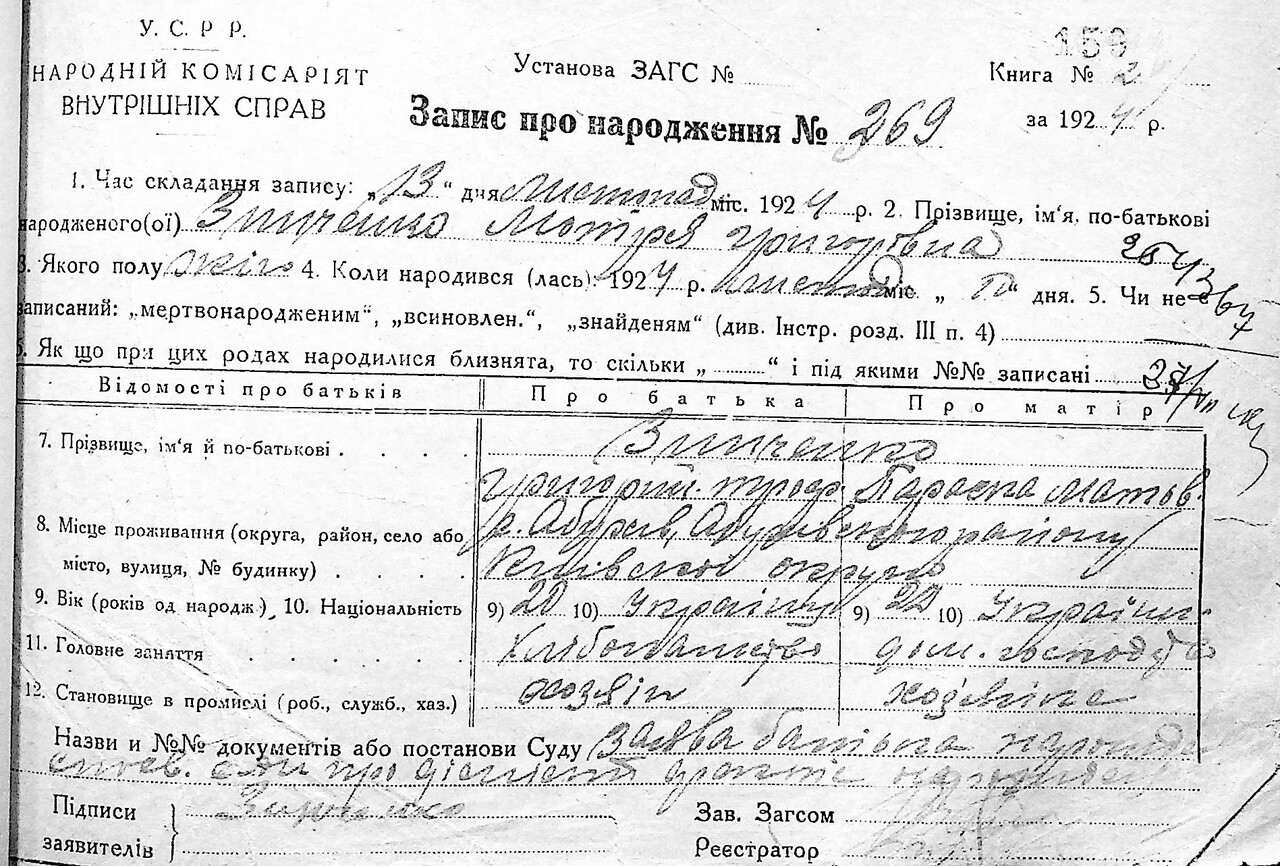 У. С. Р Р.
НАРОДНІЙ КОМІСАРІЯТ
ВНУТРІШНІХ СПРАВ
Установа ЗАГС №
159
Книга № 2
Запис про народження № 269
за 1924 р.
1. Час складання запису: „13“ дня листопад міс. 1924 р. 2. Прізвище, ім‘я, по-батькові
народженого(ої) Зинченко Мотря Григоровна
3. Якого полу жін 4. Коли народився (лась): 1924 р. листопад міс „ “ дня. 5. Чи не є
записаний: „мертвонародженим“, „всиновлен.“, „знайденям“ (див. Інстр. розд. III п. 4)
6. Як що при цих родах народилися близнята, то скільки „ “ і під якими №№ записані
Відомості про батьків Про батька Про матір
7. Прізвище, ім‘я й по-батькові . . . . Зинченко
Григорий Троф. Параска Матв.
8. Місце проживання (округа, район, село або
місто, вулиця, № будинку) . . . . Київської округи
9. Вік (років од народж). 10. Національність 9) 20 10) Українц 9) 22 10) Україн.
11. Головне заняття . . . . . . Хлібопашство дом. господство
12. Становище в промислі (роб., служб., хаз.) хозяін
Назви и №№ документів або постанови Суду Заява батька
про
Підписи
заявителів
Зинченко
Зав. Загсом
Реєстратор